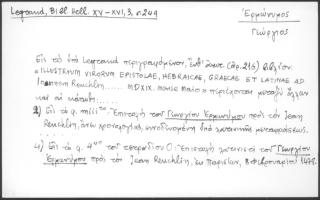 Legrand, Bibl. Hell. XV-XVI, 3, σ. 249
Ἑρμώνυμος
Γεώργιος
Εἰς τὸ ὑπὸ Legrand περιγραφόμενον, (ἀρ. 216) βιβλίον
"ILLUSTRIUM VIRORUM EPISTOLAE, HEBRAICAE, GRAECAE ET LATINAE AD
Joannem Reuchlin ..... MDXIX. MENSE MAIO" περιέχονται μεταξὺ ἄλλων
καὶ αἱ
Ἐπιστολὴ τοῦ Γεωργίου Ἑρμωνύμου πρὸς τὸν Jean
Reuchlin, ἄνευ χρονολογίας, συνοδευομένη ὑπὸ λατινικῆς μεταφράσεως.
4) Εἰς τὸ φ. 4 τοῦ τετραδίου O: Ἐπιστολὴ λατινικὴ τοῦ Γεωργίου
Ἑρμωνύμου πρὸς τὸν Jean Reuchlin, ἐκ Παρισίων, Φεβρουαρίου 1478.